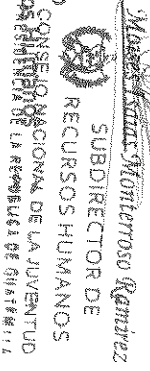 Moisés Isaías Monterroso Ramírez
SUBDIRECTOR DE
RECURSOS HUMANOS
CONSEJO NACIONAL DE LA JUVENTUD
DE LA REPÚBLICA DE GUATEMALA